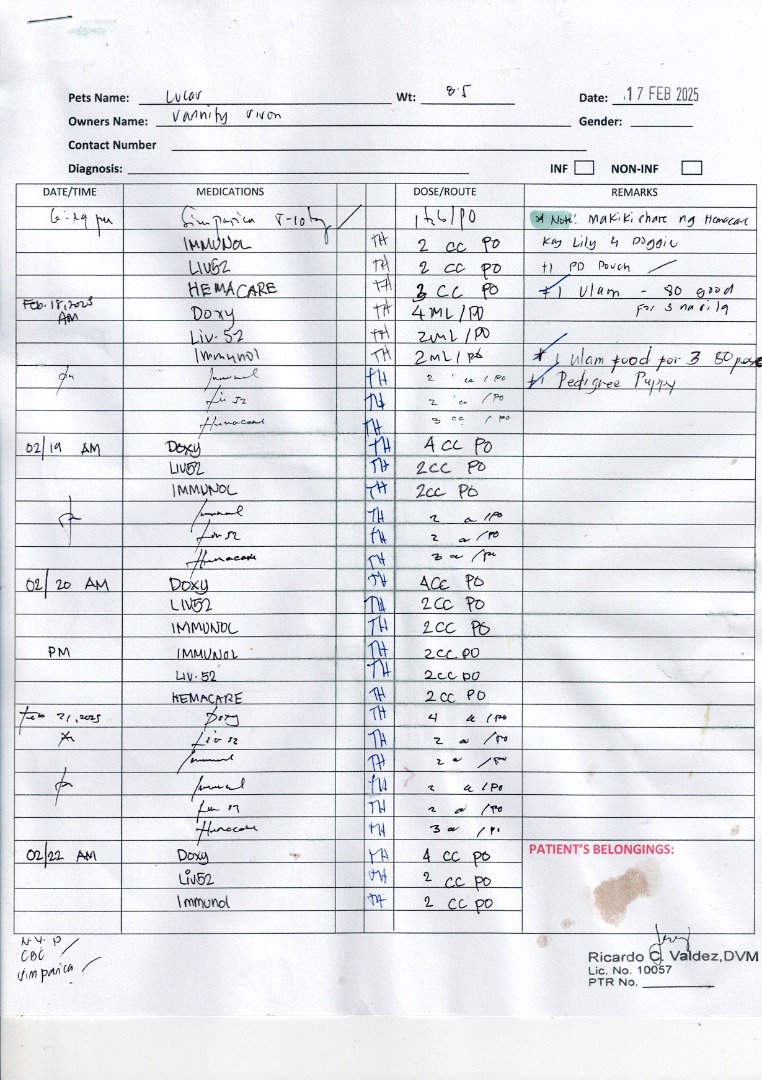 Pets Name: Lucas Wt: 8.5 Date: 17 FEB 2025
Owners Name: Vannity Gender:
Contact Number
Diagnosis: INF NON-INF
DATE/TIME MEDICATIONS DOSE/ROUTE REMARKS
Simparica 5-10kg / 1 tab/PO * Note: Makikishare ng Hemacare
IMMUNOL TH 2 cc PO Kay Lily & Doggie
LIV52 TH 2 cc PO +1 PD Pouch /
HEMACARE TH 3 CC PO +1 Ulam - 80 good
for 3 na nila
Feb. 18, 2025 AM Doxy TH 4 ML/PO
Liv-52 TH 2mL/PO
Immunol TH 2mL/PO * 1 ulam food for 3 80 pesos
pm Immunol TH 2 cc/PO +1 Pedigree Puppy
Liv 52 TH 2 cc/PO
Hemacare TH 3 cc/PO
02/19 AM Doxy TH 4 CC PO
LIV52 TH 2CC PO
IMMUNOL TH 2cc PO
pm Immunol TH 2 cc/PO
Liv 52 TH 2 cc/PO
Hemacare TH 3 cc/PO
02/20 AM Doxy TH 4CC PO
LIV52 TH 2CC PO
IMMUNOL TH 2CC PO
PM IMMUNOL TH 2CC PO
LIV-52 TH 2CC PO
HEMACARE TH 2CC PO
Feb 21, 2025 Doxy TH 4 cc/PO
Am Liv 52 TH 2 cc/PO
Immunol TH 2 cc/PO
pm Immunol TH 2 cc/PO
Liv 52 TH 2 cc/PO
Hemacare TH 3 cc/PO
02/22 AM Doxy TH 4 CC PO PATIENT'S BELONGINGS:
Liv52 TH 2 CC PO
Immunol TH 2 CC PO
CBC /
Simparica /
Ricardo C. Valdez, DVM
Lic. No. 10057
PTR No.